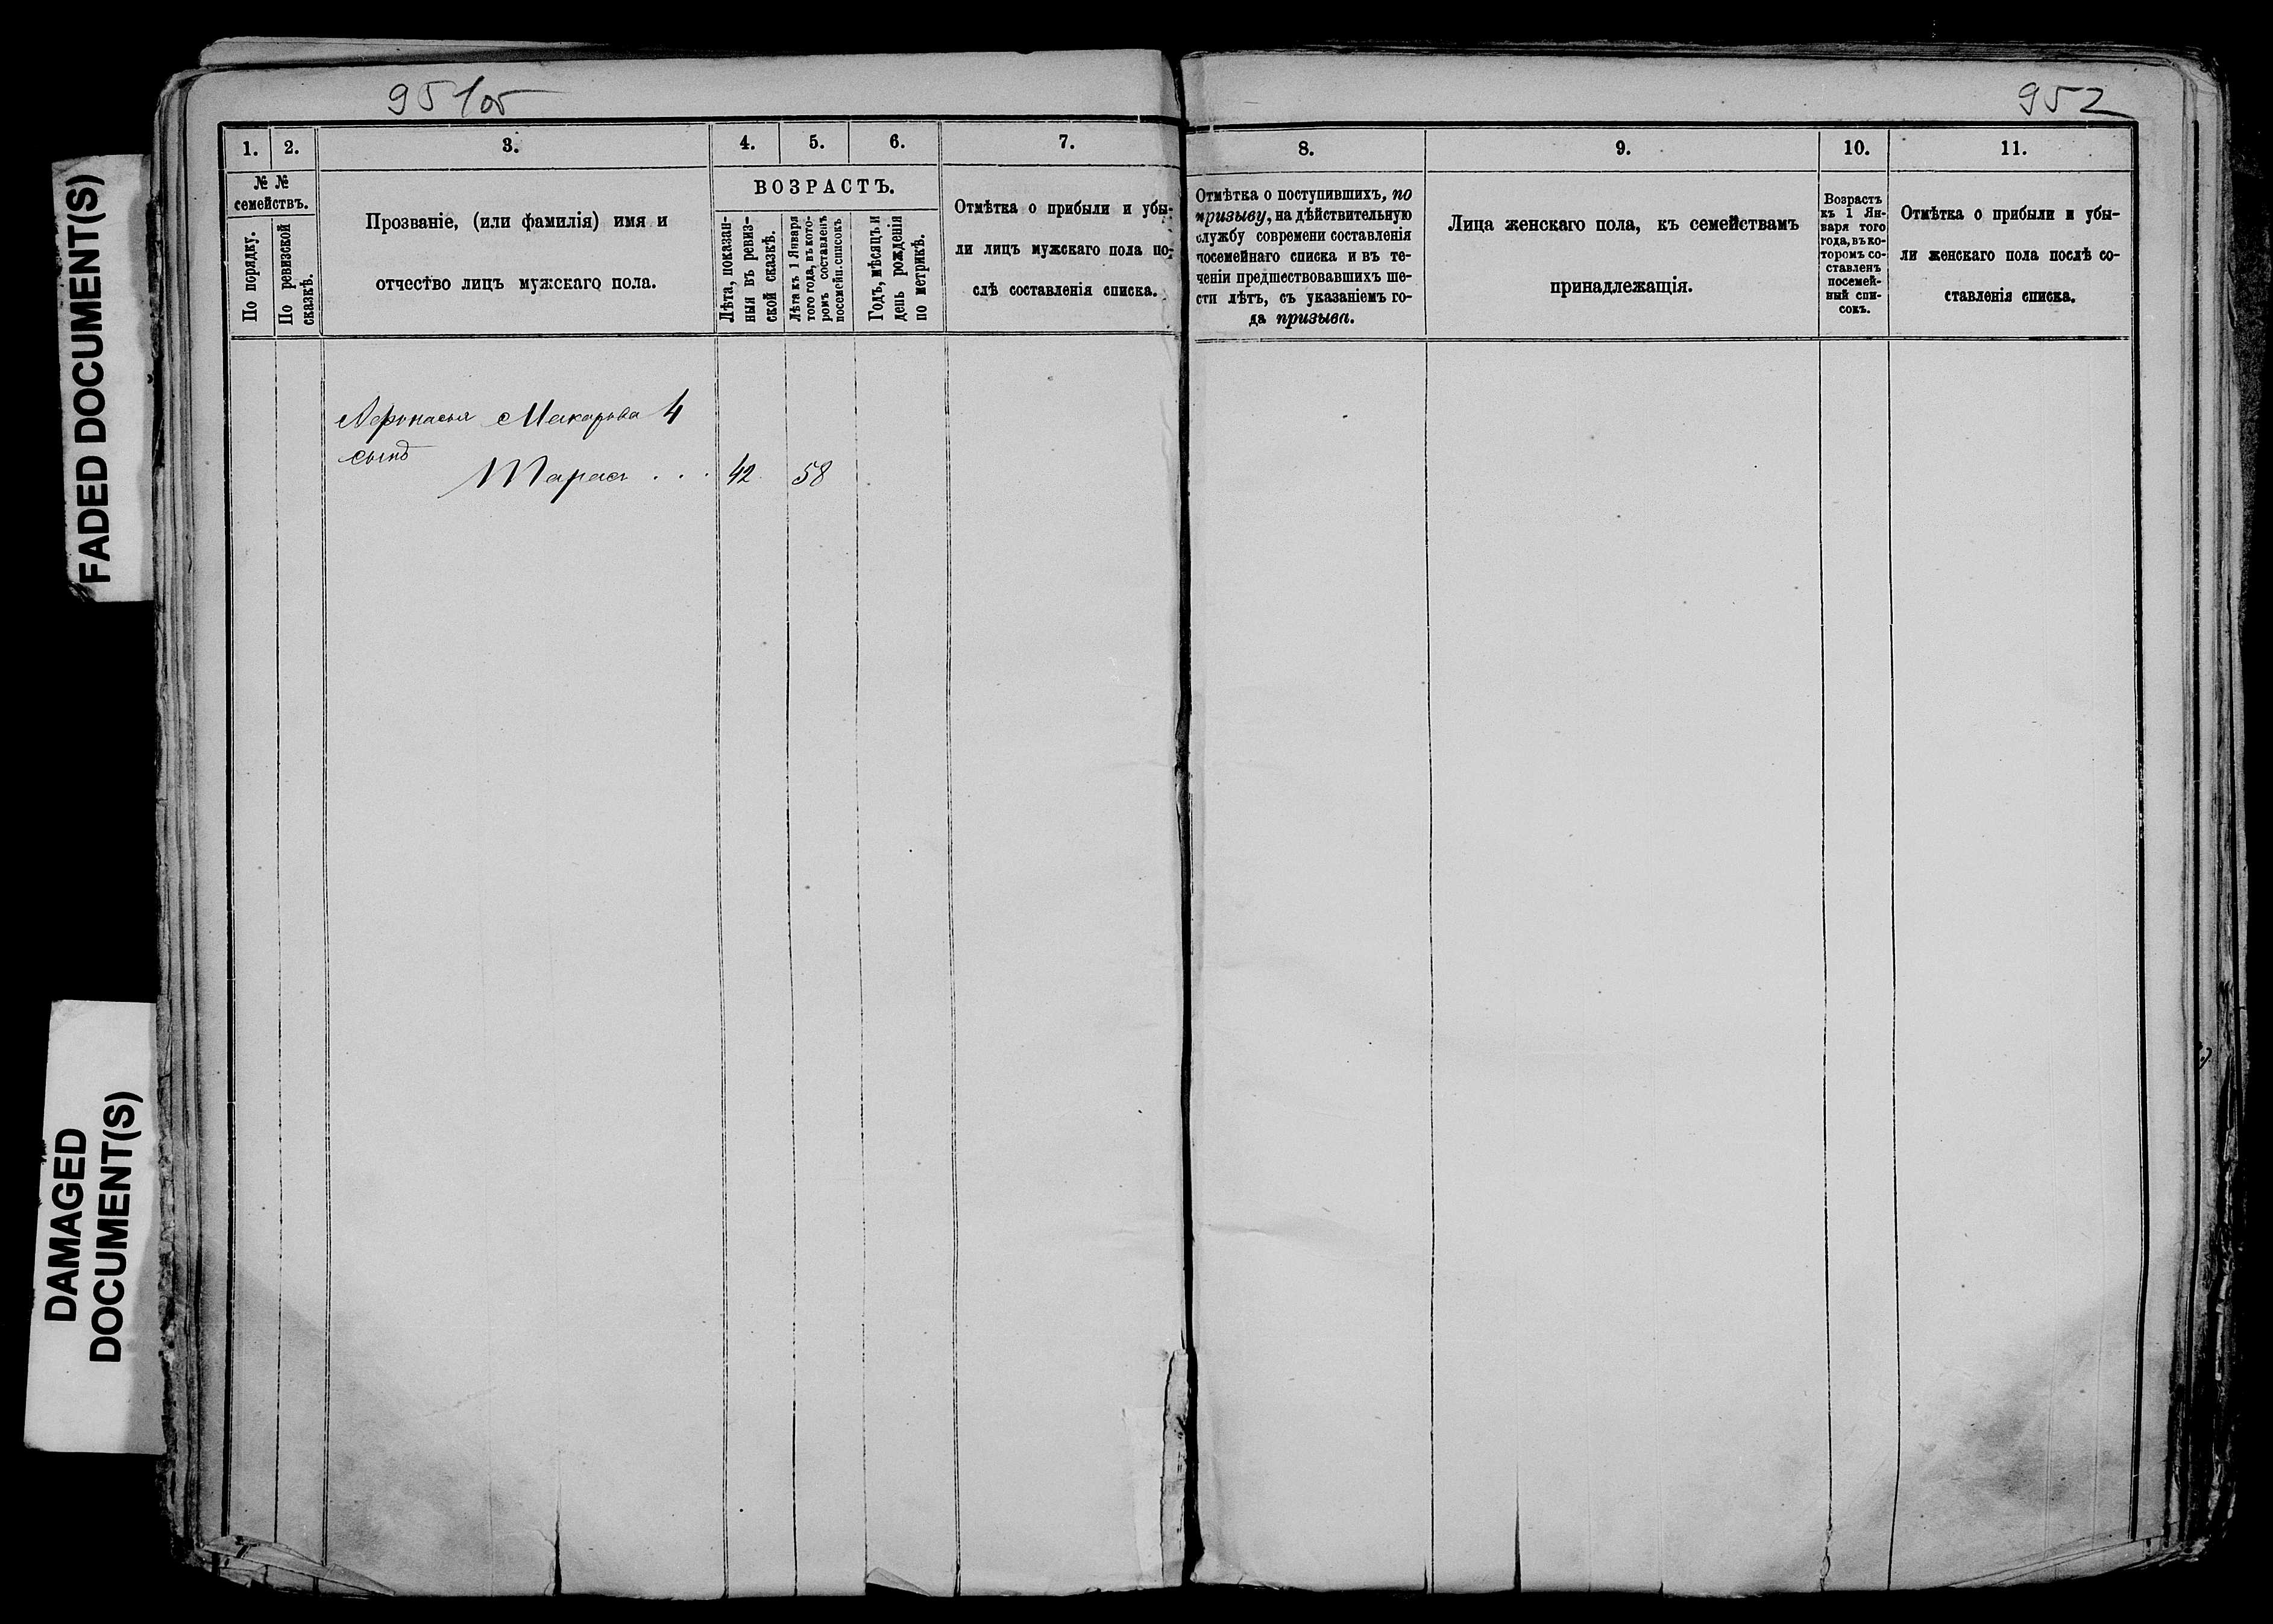 FADED DOCUMENT(S)
DAMAGED
DOCUMENT(S)
951об
1.
2.
3.
4.
5.
6.
7.
№ №
семействъ.
По порядку.
По ревизской
сказкѣ.
Прозваніе, (или фамилія) имя и
отчество лицъ мужскаго пола.
ВОЗРАСТЪ.
Лѣта, показан-
ныя въ ревиз-
ской сказкѣ.
Лѣта къ 1 Января
того года, въ кото-
ромъ составленъ
посемейн. списокъ
Годъ, мѣсяцъ и
день рожденія
по метрикѣ.
Отмѣтка о прибыли и убы-
ли лицъ мужскаго пола по-
слѣ составленія списка.
Афонасья Макарова 4
сынъ
Тарасъ . . . 42. 58
952
8.
9.
10.
11.
Отмѣтка о поступившихъ, по
призыву, на дѣйствительную
службу современи составленія
посемейнаго списка и въ те-
ченіи предшествовавшихъ ше-
сти лѣтъ, съ указаніемъ го-
да призыва.
Лица женскаго пола, къ семействамъ
принадлежащія.
Возрастъ
къ 1 Ян-
варя того
года, въ ко-
торомъ со-
ставленъ
посемей-
ный спи-
сокъ.
Отмѣтка о прибыли и убы-
ли женскаго пола послѣ со-
ставленія списка.